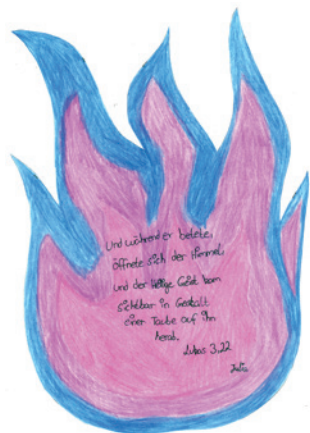 Und während er betete,
öffnete sich der Himmel,
und der Heilige Geist kam
sichtbar in Gestalt
einer Taube auf ihn
herab.
Lukas 3,22
Julia